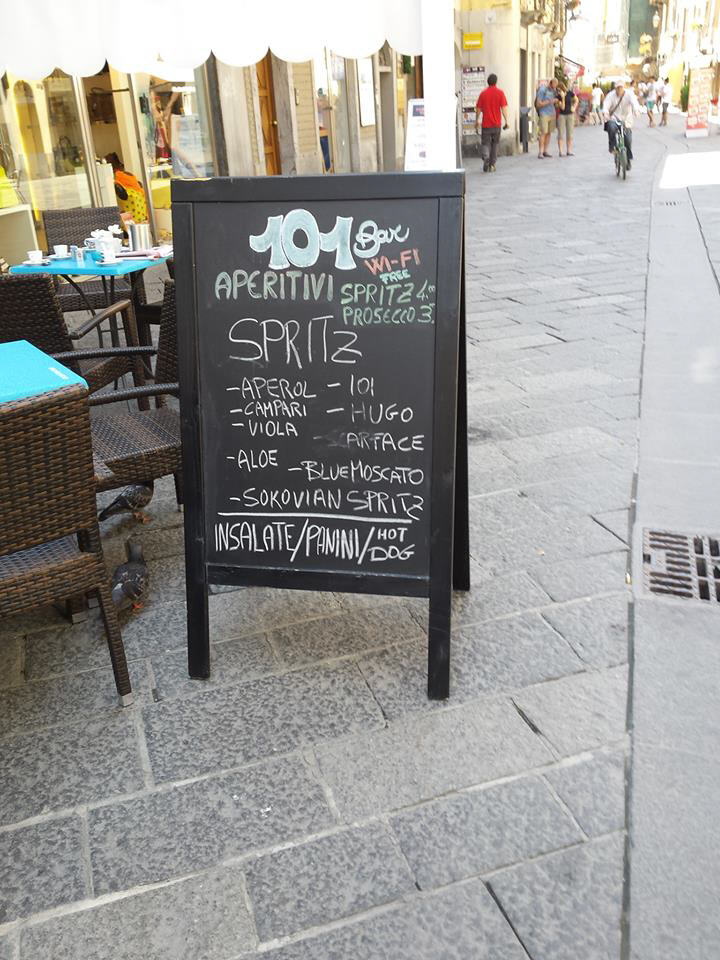 101 Bar
WI-FI
FREE
APERITIVI
SPRITZ 4.
PROSECCO 3.
SPRITZ
-APEROL - 101
-CAMPARI - HUGO
-VIOLA
-ALOE -BLUE MOSCATO
-SOKOVIAN SPRITZ
INSALATE/PANINI/HOT DOG